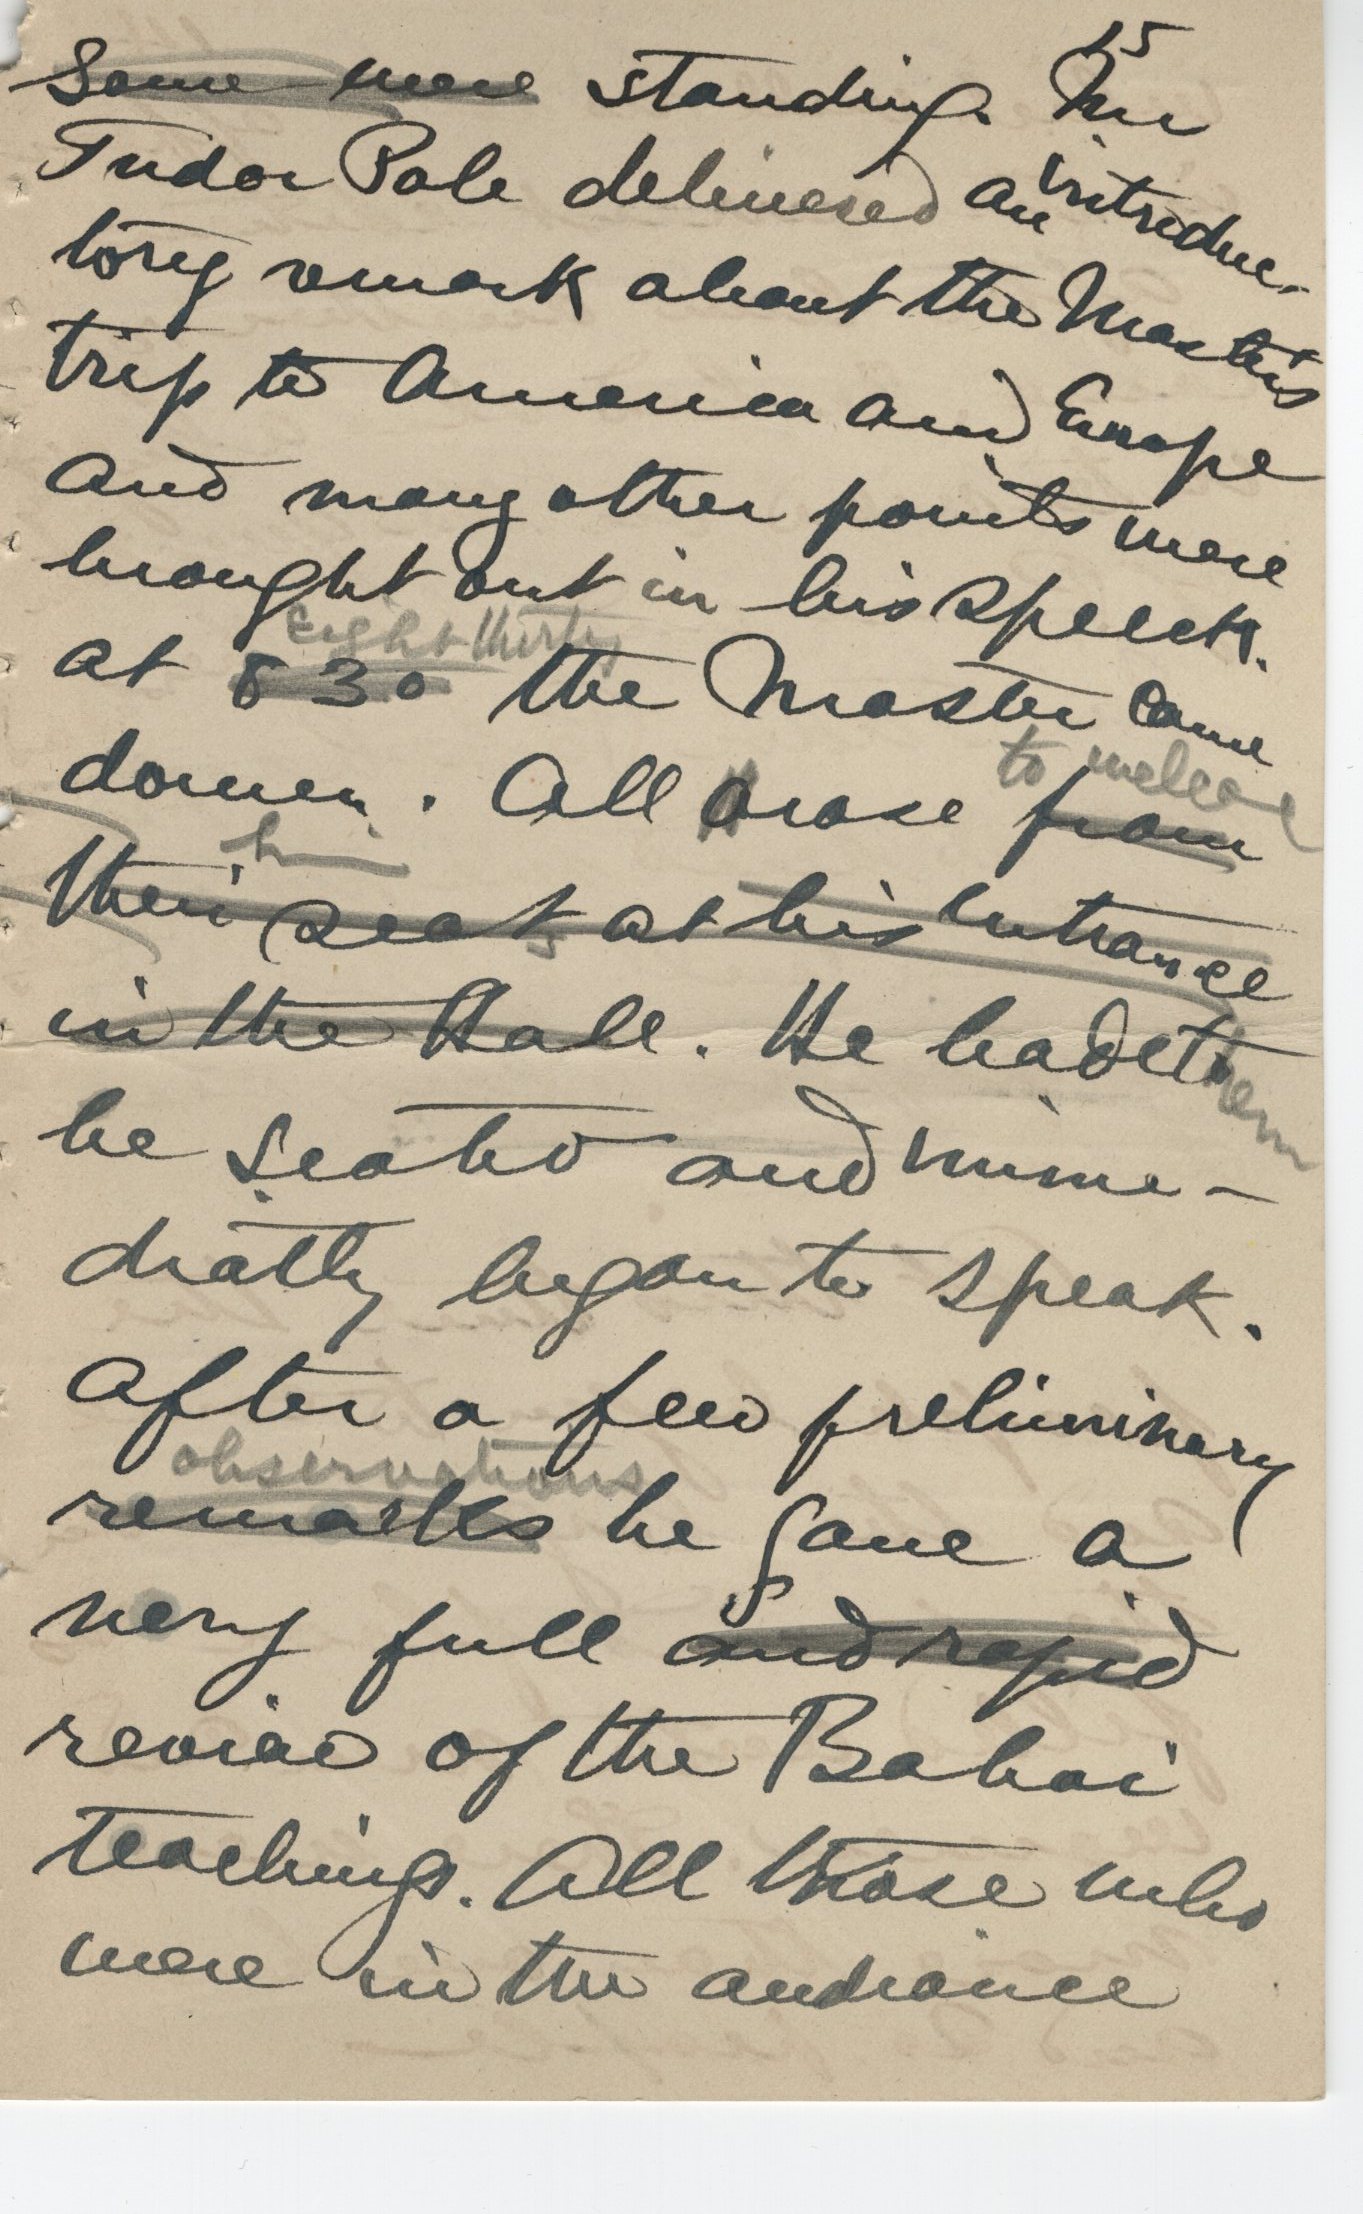 15
Some were standing. Mr
Tudor Pole delivered an introduc-
tory remark about the Master's
trip to America and Europe
and many other points were
brought out in his speech.
eight thirty
at 8 30 the Master came
to welcome
down. All arose from
him
their seats at his entrance
in the Hall. He bade them
be seated and imme-
diatly began to speak.
After a few preliminary
observations
remarks he gave a
very full and rapid
review of the Bahai
teachings. All those who
were in the audiance